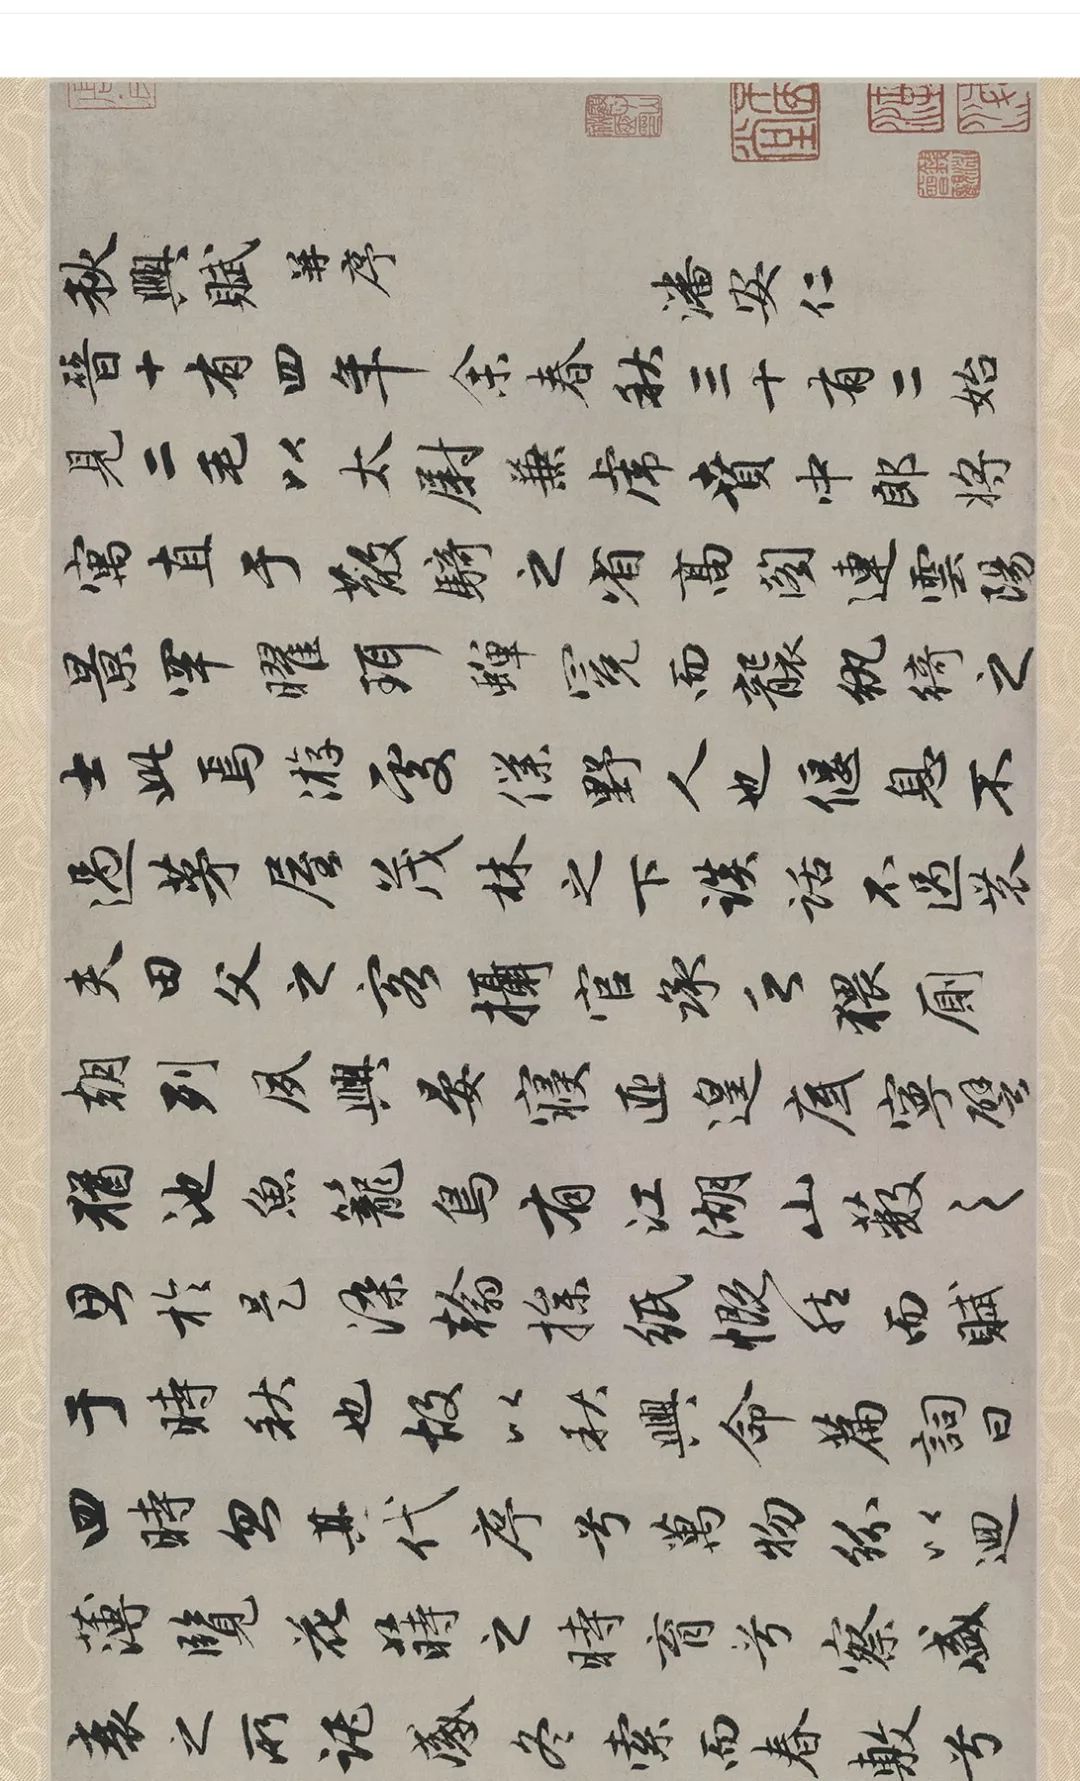 秋興賦 并序 潘安仁
晉十有四年余春秋三十有二始
見二毛以太尉兼虎賁中郎將
寓直于散騎之省高閣連雲陽
景罕曜珥蟬冕而襲紈綺之
士此焉游處僕野人也偃息不
過茅屋茂林之下談話不過農
夫田父之客攝官承乏猥厠
朝列夙興晏寢匪遑底寧譬
猶池魚籠鳥有江湖山藪之
思於是染翰操紙慨然而賦
于時秋也故以秋興命篇詞曰
四時忽其代序兮萬物紛以迴
薄覽花蒔之時育兮察盛
衰之所託感冬索而春敷兮